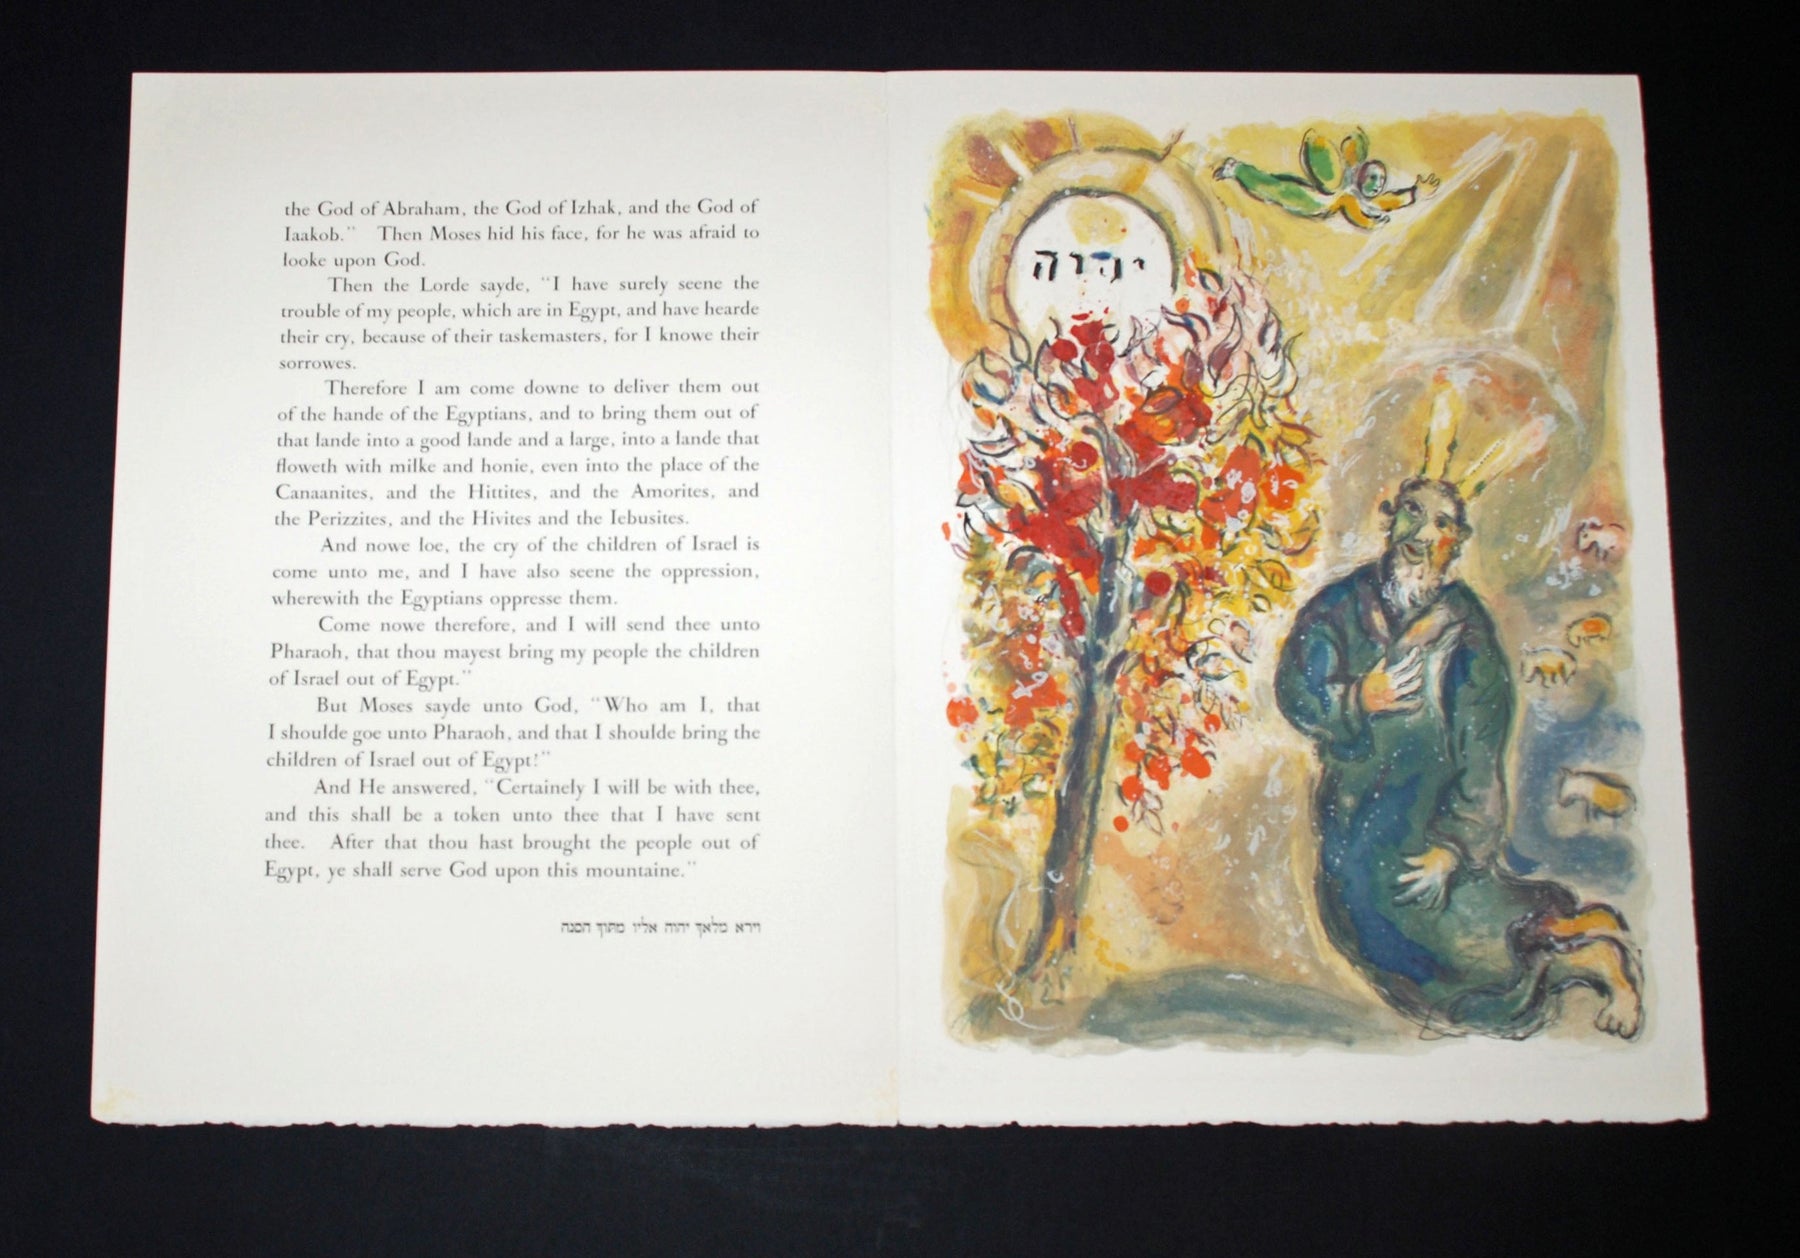 the God of Abraham, the God of Izhak, and the God of
Iaakob." Then Moses hid his face, for he was afraid to
looke upon God.
Then the Lorde sayde, "I have surely seene the
trouble of my people, which are in Egypt, and have hearde
their cry, because of their taskemasters, for I knowe their
sorrowes.
Therefore I am come downe to deliver them out
of the hande of the Egyptians, and to bring them out of
that lande into a good lande and a large, into a lande that
floweth with milke and honie, even into the place of the
Canaanites, and the Hittites, and the Amorites, and
the Perizzites, and the Hivites and the Iebusites.
And nowe loe, the cry of the children of Israel is
come unto me, and I have also seene the oppression,
wherewith the Egyptians oppresse them.
Come nowe therefore, and I will send thee unto
Pharaoh, that thou mayest bring my people the children
of Israel out of Egypt."
But Moses sayde unto God, "Who am I, that
I shoulde goe unto Pharaoh, and that I shoulde bring the
children of Israel out of Egypt!"
And He answered, "Certainely I will be with thee,
and this shall be a token unto thee that I have sent
thee. After that thou hast brought the people out of
Egypt, ye shall serve God upon this mountaine."
וירא מלאך יהוה אליו מתוך הסנה
יהוה